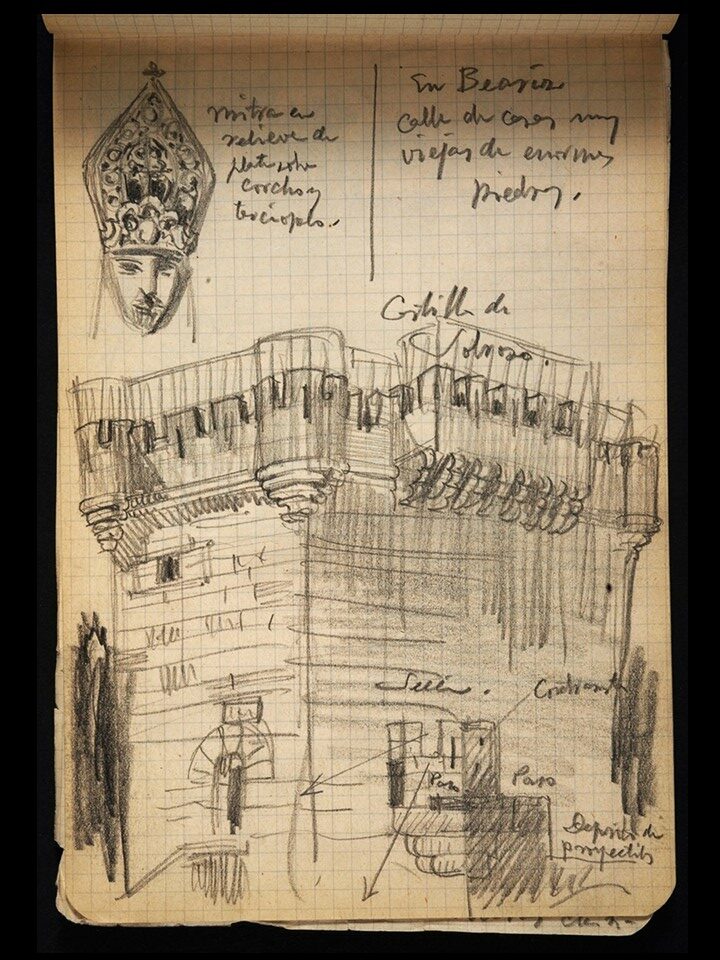 mitra en
relieve de
plata sobre
corcho y
terciopelo.
En Beariz
calle de casas muy
viejas de enormes
piedras.
Castillo de
Sobroso.
Paso
Paso
Deposito de
proyectiles